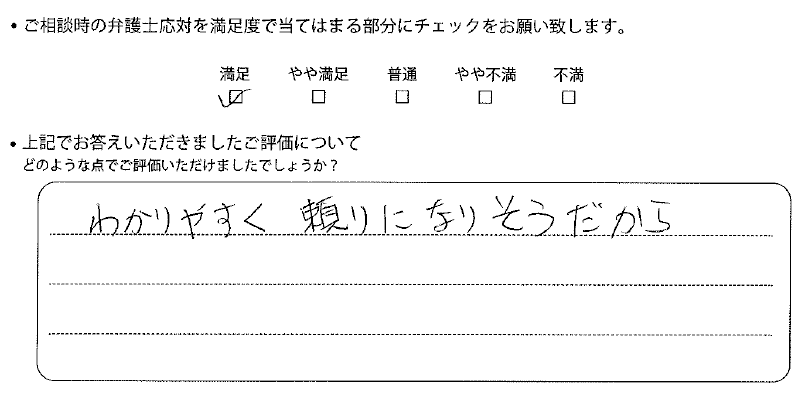 ・ご相談時の弁護士応対を満足度で当てはまる部分にチェックをお願い致します。
満足 やや満足 普通 やや不満 不満
☑ □ □ □ □
・上記でお答えいただきましたご評価について
どのような点でご評価いただけましたでしょうか？
わかりやすく 頼りになりそうだから